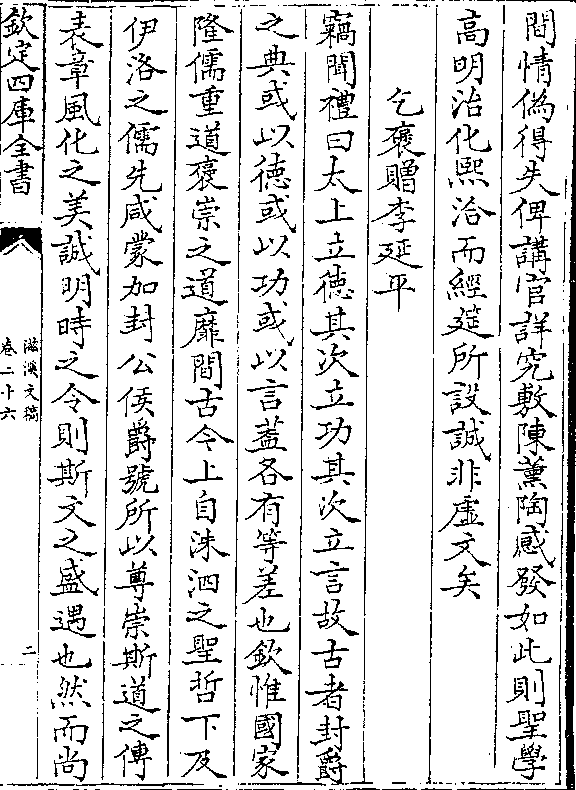 間情偽得失俾講官詳究敷陳薫陶感發如此則聖學
高明治化熙洽而經筵所設誠非虛文矣
乞褒贈李延平
竊聞禮曰太上立德其次立功其次立言故古者封爵
之典或以德或以功或以言蓋各有等差也欽惟國家
隆儒重道褒崇之道靡間古今上自洙泗之聖哲下及
伊洛之儒先咸蒙加封公侯爵號所以尊崇斯道之傳
表章風化之美誠明時之令則斯文之盛遇也然而尚
欽定四庫全書
滋溪文稿
卷二十六
二